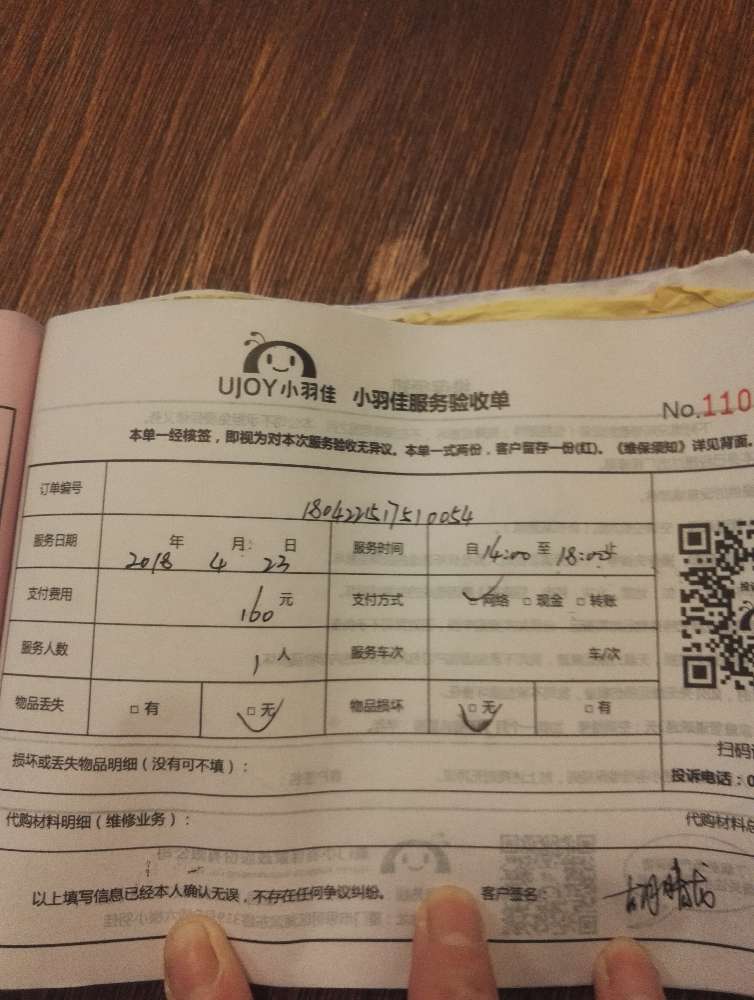 UJOY小羽佳 小羽佳服务验收单
No.110
本单一经核签，即视为对本次服务验收无异议。本单一式两份，客户留存一份(红)。《维保须知》详见背面。
订单编号 1804221517510054
服务日期 2018年4月23日 服务时间 自14:00至18:00止
支付费用 160元 支付方式 □网络 □现金 □转账
服务人数 1人 服务车次 车/次
物品丢失 □有 □无 物品损坏 □无 □有
扫码
损坏或丢失物品明细（没有可不填）：
投诉电话：0
代购材料明细（维修业务）： 代购材料总
以上填写信息已经本人确认无误，不存在任何争议纠纷。 客户签名：